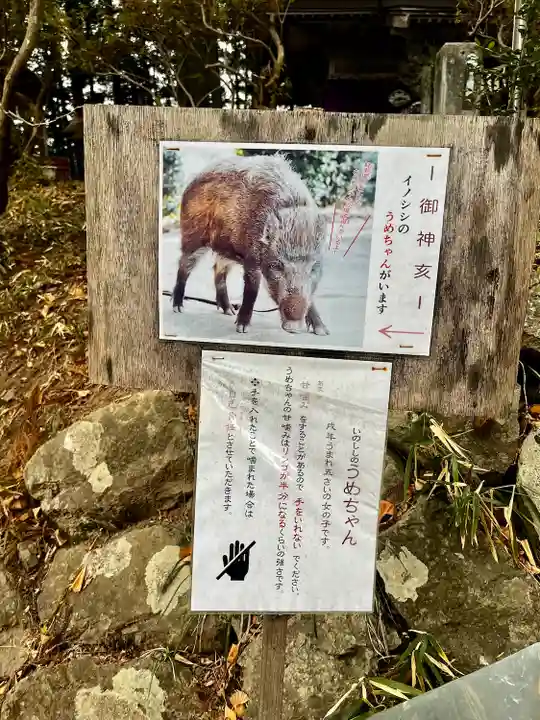 ー御神亥ー
イノシシの
うめちゃんがいます
いのししのうめちゃん
戌年うまれ五さいの女の子です。
あま
甘噛みをすることがあるので手をいれないでください。
うめちゃんの甘噛みはリンゴが半分になるくらいの強さです。
手を入れたことで噛まれた場合は
とさせていただきます。